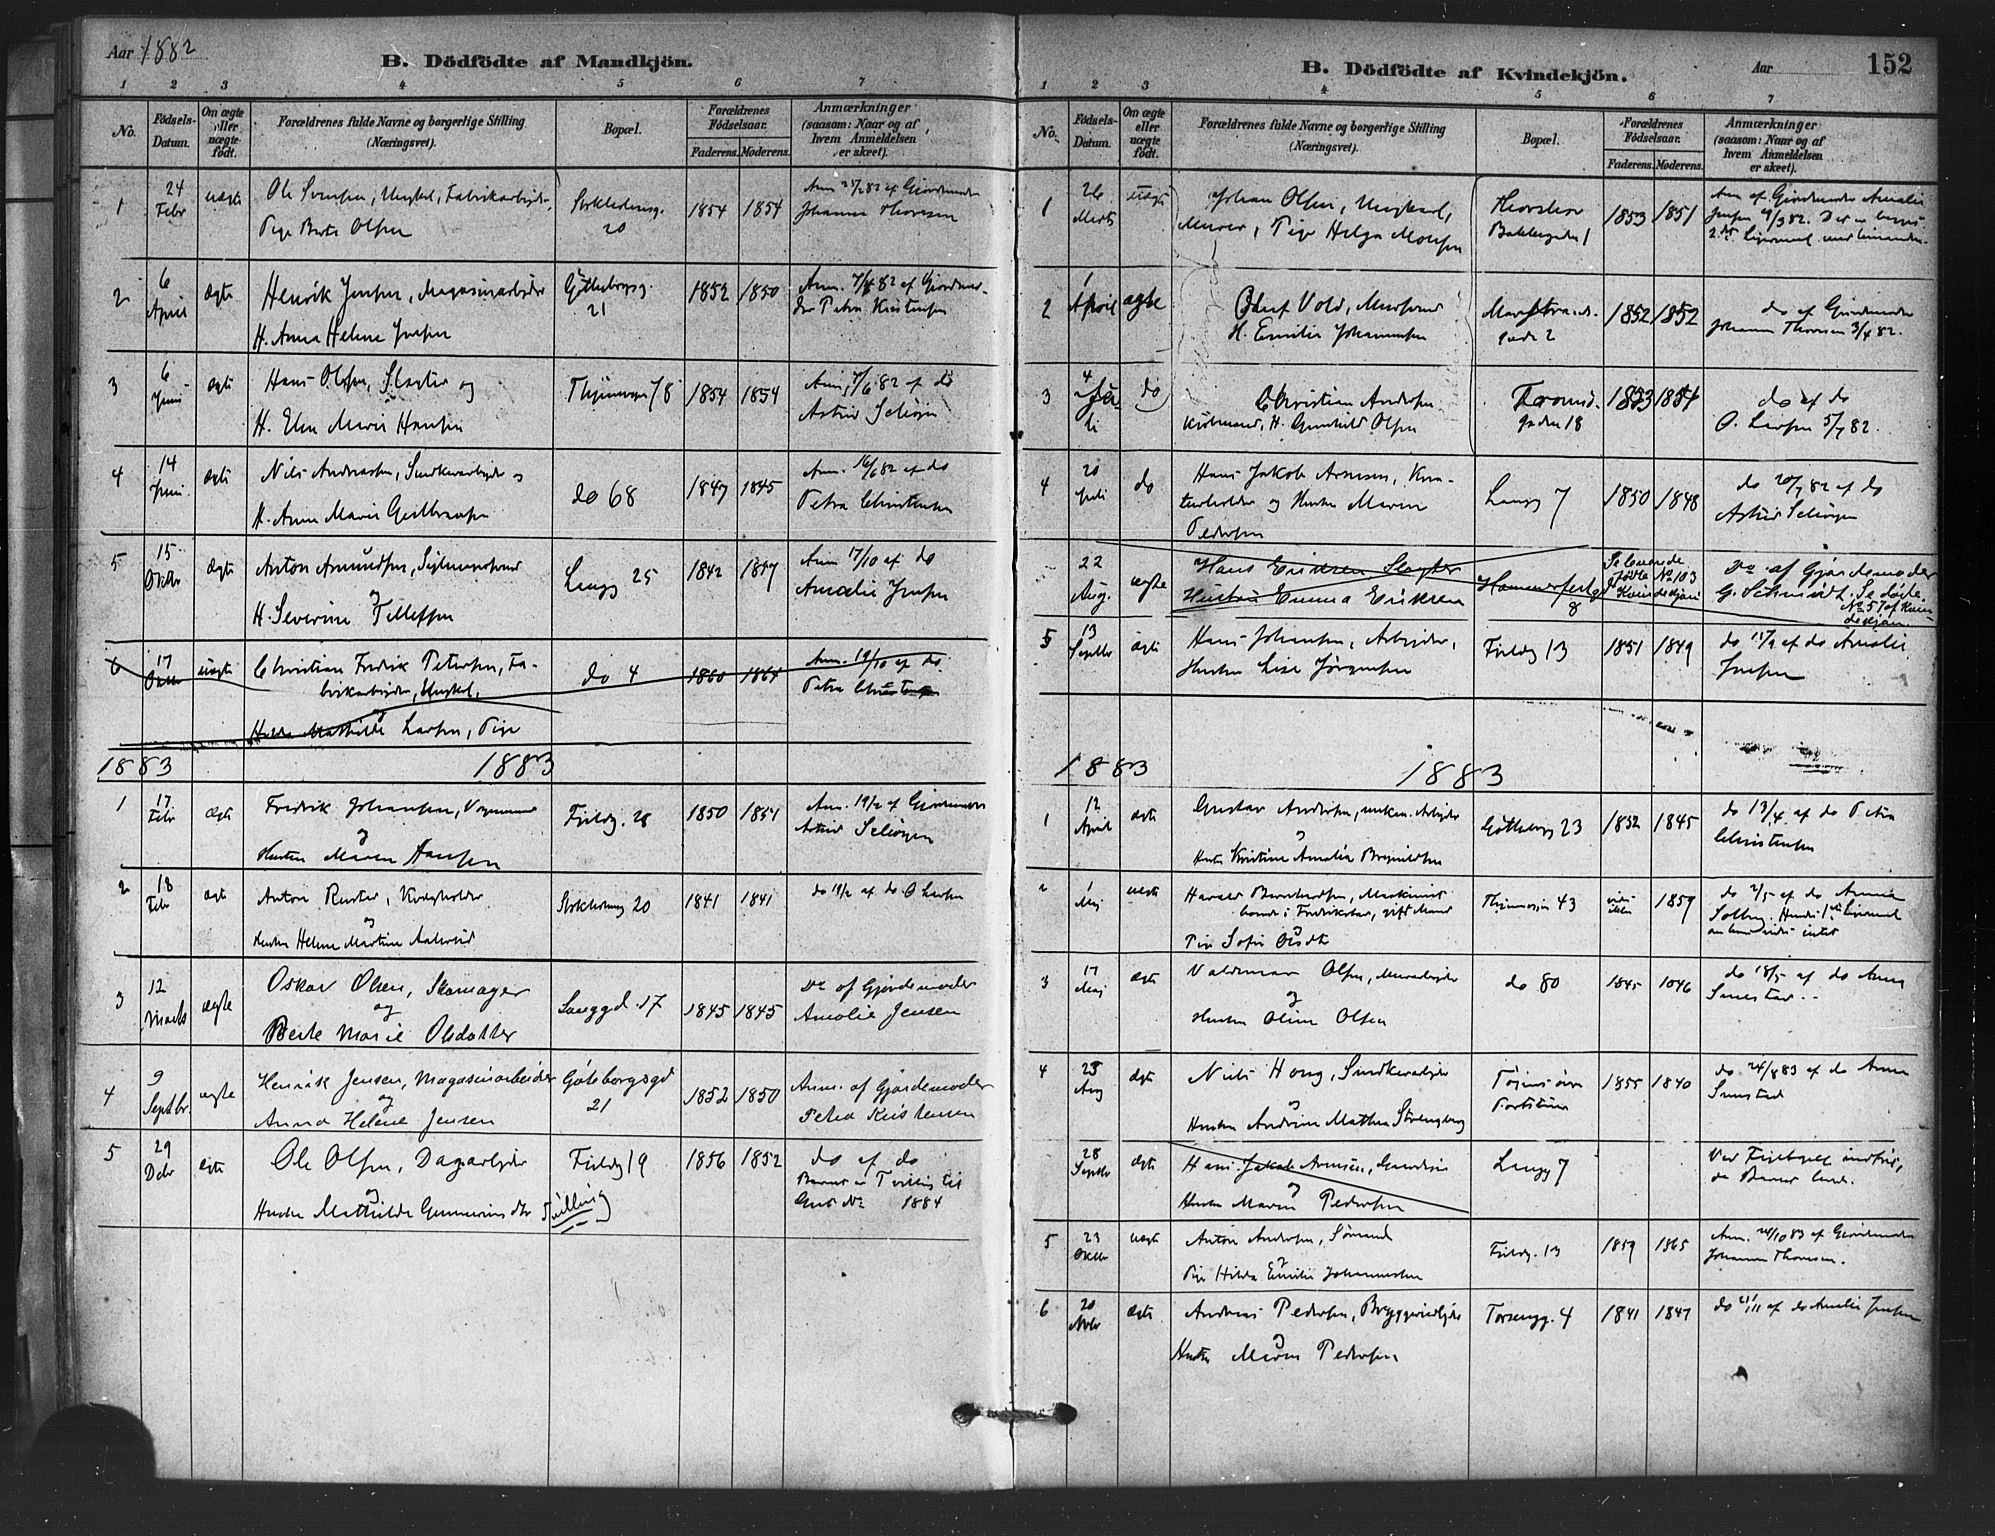 Aar 1882
B. Dödfödte af Mandkjön.
1 2 3 4 5 6 7
No. Födsels-Datum. Om ægte eller uægte födt. Forældrenes fulde Navne og borgerlige Stilling (Næringsvei). Bopæl. Forældrenes Födselsaar. Faderens. Moderens. Anmærkninger (saasom: Naar og af hvem Anmeldelsen er skeet).
1 24 Febr uægte Ole Svensen, Ungkarl, Fabrikarbeider,
Pige Berte Olsen
20 1854 1854
Johanna Thoresen
2 6 April ægte Henrik Jensen, Magasinarbeider
H. Anna Helene Jensen
Göteborgsg. 21 1852 1850 Anm. 7/4 82 af Gjordemo-
der Petra Kristensen
3 6 Juni ægte Hans Olsen, Slagter og
H. Elen Marie Hansen
78 1854 1854 Anm. 7/6 82 af do
Astrid
4 14 Juni ægte Nils Andreassen, og
H. Anne Marie
do 68 1847 1845 Anm. 16/6 82 af do
Petra Christensen
5 15 Oktbr ægte Anton Amundsen,
og
H. Severine Tollefsen
Langg 25 1842 1847 Anm 17/10 af do
Amalie Jensen
6 17 Oktbr uægte Christian Fredrik Petersen, Fa-
brikarbeider, Ungkarl,
og
Hulda Mathilde Larsen, Pige
do 4 1860 1864 Anm. 19/10 af do
Petra Christensen
1883 1883
1 17 Febr ægte Fredrik Johansen, Vognmand
og
Hustru Maren Hansen
Fjeldg. 28 1850 1851 Anm. 19/2 af Gjordemoder
Astrid
2 18 Febr ægte Anton
og
Hustru Helene Martine
20 1841 1841 do 19/2 af do O Larsen
3 12 Marts ægte Oskar Olsen, Skomager
og
Berte Marie Olsdatter
Langgd. 17 1845 1845 Do af Gjordemoder
Amalie Jensen
4 9 Septbr. uegte Henrik Jensen, Magasinarbeider
og
Anna Helene Jensen
Göteborgsgd 21 1852 1850 Anm. af Gjordemoder
Petra Kristensen
5 29 Debr ægte Ole Olsen, Dagarbeider
og
Hustru Mathilde Gunnerius dtr Tvilling
Fjeldg 19 1856 1852 do af do
Barnet er Tvilling til
Gut No 1884
B. Dödfödte af Kvindekjön.
Aar 152
1 2 3 4 5 6 7
No. Födsels-Datum. Om ægte eller uægte födt. Forældrenes fulde Navne og borgerlige Stilling (Næringsvei). Bopæl. Forældrenes Födselsaar. Faderens. Moderens. Anmærkninger (saasom: Naar og af hvem Anmeldelsen er skeet).
1 26 Marts uægte Johan Olsen, Ungkarl,
Murer, Pige Helga
1 1853 1851 Anm af Gjordemoder Amalie
Jensen
2 1 April ægte Olaf Vold, Murersvend
H. Emilie Johannesen
Markstrands-
gade 2 1852 1852 do af Gjordemoder
Johanna Thoresen 3/4 82.
3 4 Juli do Christian Andersen
H. Gunhild Olsen
Tromsö-
gaden 18 1853 1854 do af do
O. Larsen 5/7 82.
4 20 Juli do Hans Jakob Arnesen, Kva-
terholder og Hustru Maren
Pedersen
Langg 7 1850 1848 do 20/7 82 af do
Astrid
22 Aug. uegte Hans Eriksen Slagter
Hustru Emma Eriksen
Hammerfestgd 8 Se levende
födte No 103
Kvindekjön
Do af Gjordemoder
G. Schmidt. Se døde.
No 57 af Kvin-
dekjön
5 13 Septbr ægte Hans Johansen, Arbeider,
Hustru Lise Jørgensen
Fjeldg 13 1851 1849 do 15/9 af do Amalie
Jensen
1883 1883
1 12 April ægte Gustav Andersen,
og
Hustru Kristine Amalie
Göteborgg 23 1852 1845 do 13/4 af do Petra
Christensen
2 1 Maj uægte Harald Berntsen, Maskinist
Pige Sofie Olsdtr
43 vides ikke 1859 do 2/5 af do Anna
3 17 Maj ægte Valdemar Olsen, Murarbeider
og
Hustru Oline Olsen
do 80 1845 1846 do 18/5 af do Anna
Smestad
4 23 Aug ægte Niels Haug,
og
Hustru Andrine Mathea
1855 1840 do 24/8 83 af do Anna
Smestad
28 Septbr ægte Hans Jakob Arnesen,
og
Hustru Maren Pedersen
Langg 7 Ved Feiltagelse indført,
da Barnet levde.
5 23 Oktbr uægte Anton Andersen, Sømand
og
Pige Hilda Emilie Johannesen
Fjeldg. 13 1859 1865 Anm. 24/10 83 af Gjordemoder
Johanna Thoresen.
6 20 Novbr ægte Andreas Pedersen, Bryggeriarbeider
og
Hustru Maren Pedersen
4 1841 1847 do 21/11 af do Amalie Jensen